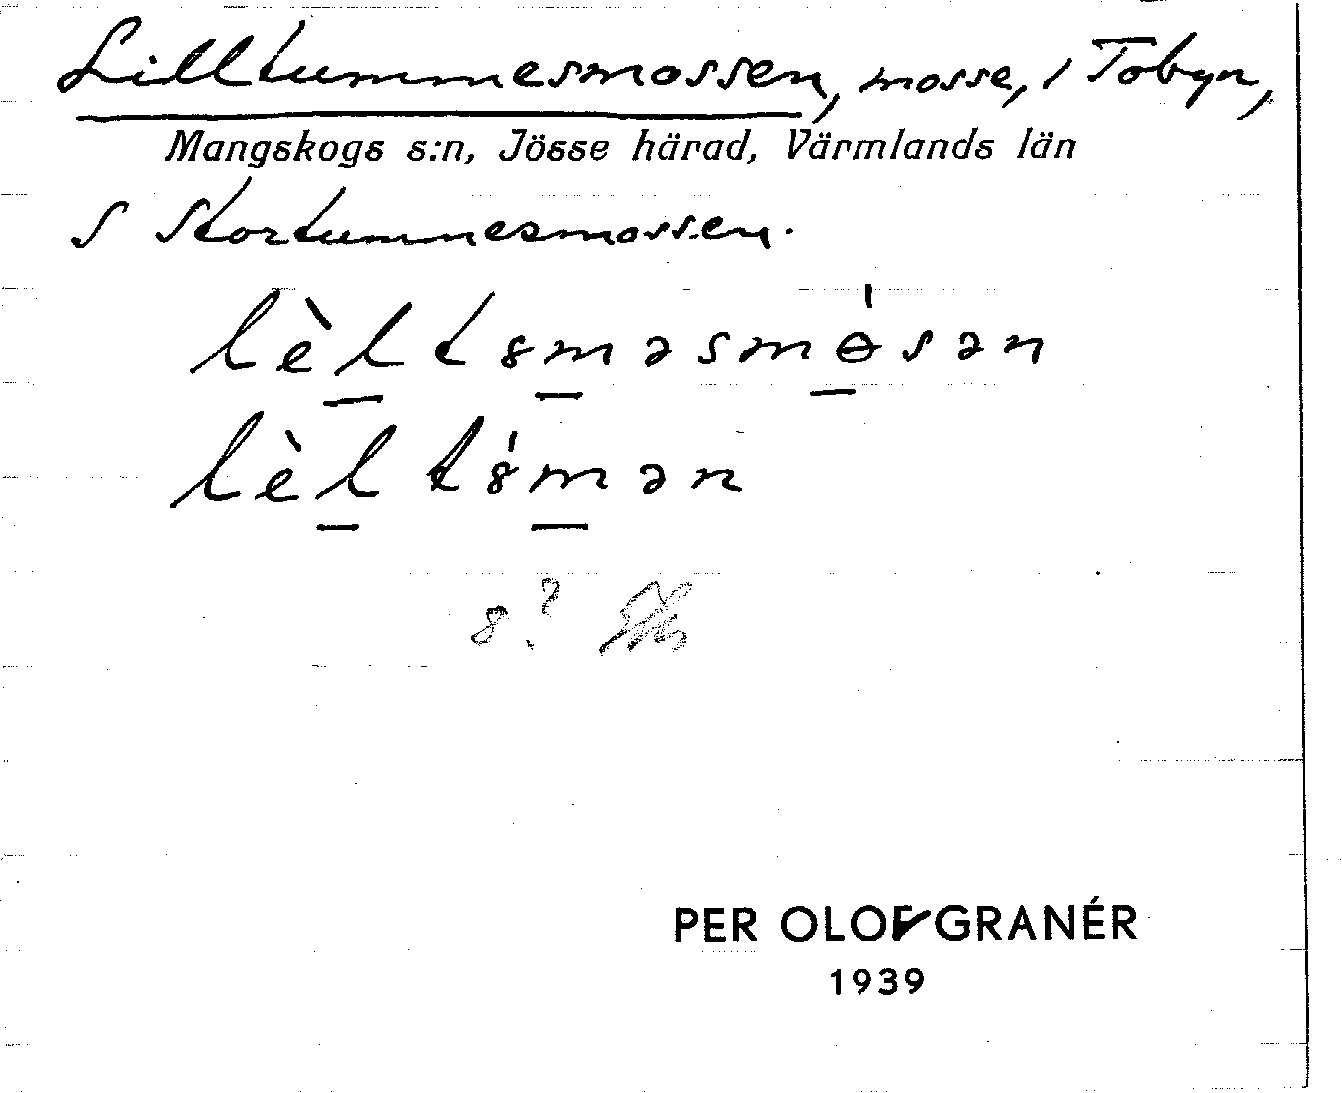 Lilltummesmossen, mosse, i Tobyn,
Mangskogs s:n, Jösse härad, Värmlands län
S Stortummesmossen.
lèltȣməsmɵ́sən
lèltȣ́mən
ȣ?
PER OLOF GRANÉR
1939